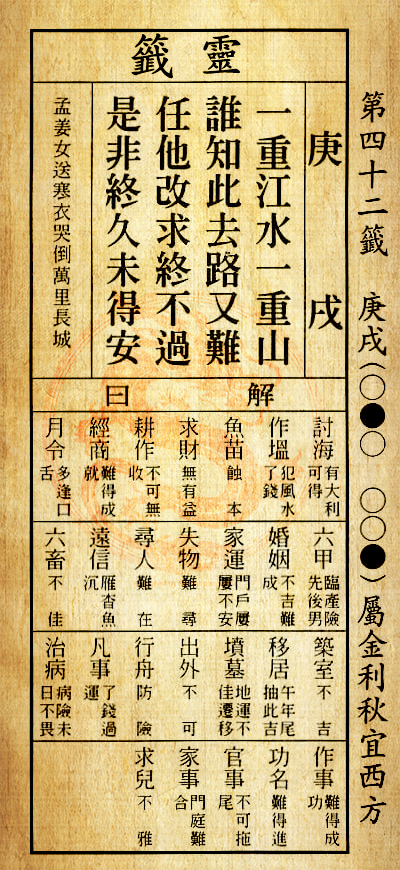 第四十二籤 庚戌(○●○ ○○●)屬金利秋宜西方
靈籤
庚戌
一重江水一重山
誰知此去路又難
任他改求終不過
是非終久未得安
孟姜女送寒衣哭倒萬里長城
解曰
討海 有大利可得
作塭 犯風水了錢
魚苗 蝕本
求財 無有益
耕作 不可無收
經商 難得成就
月令 多逢口舌
六甲 臨產險先後男
婚姻 不吉難成
家運 門戶屢屢不安
失物 難尋
尋人 難在
遠信 雁杳魚沉
六畜 不佳
築室 不吉
移居 午年尾抽此吉
墳墓 地運不佳遷移
出外 不可
行舟 防險
凡事 了錢過運
治病 病險未日不畏
作事 難得成功
功名 難得進
官事 不可拖尾
家事 門庭難合
求兒 不雅